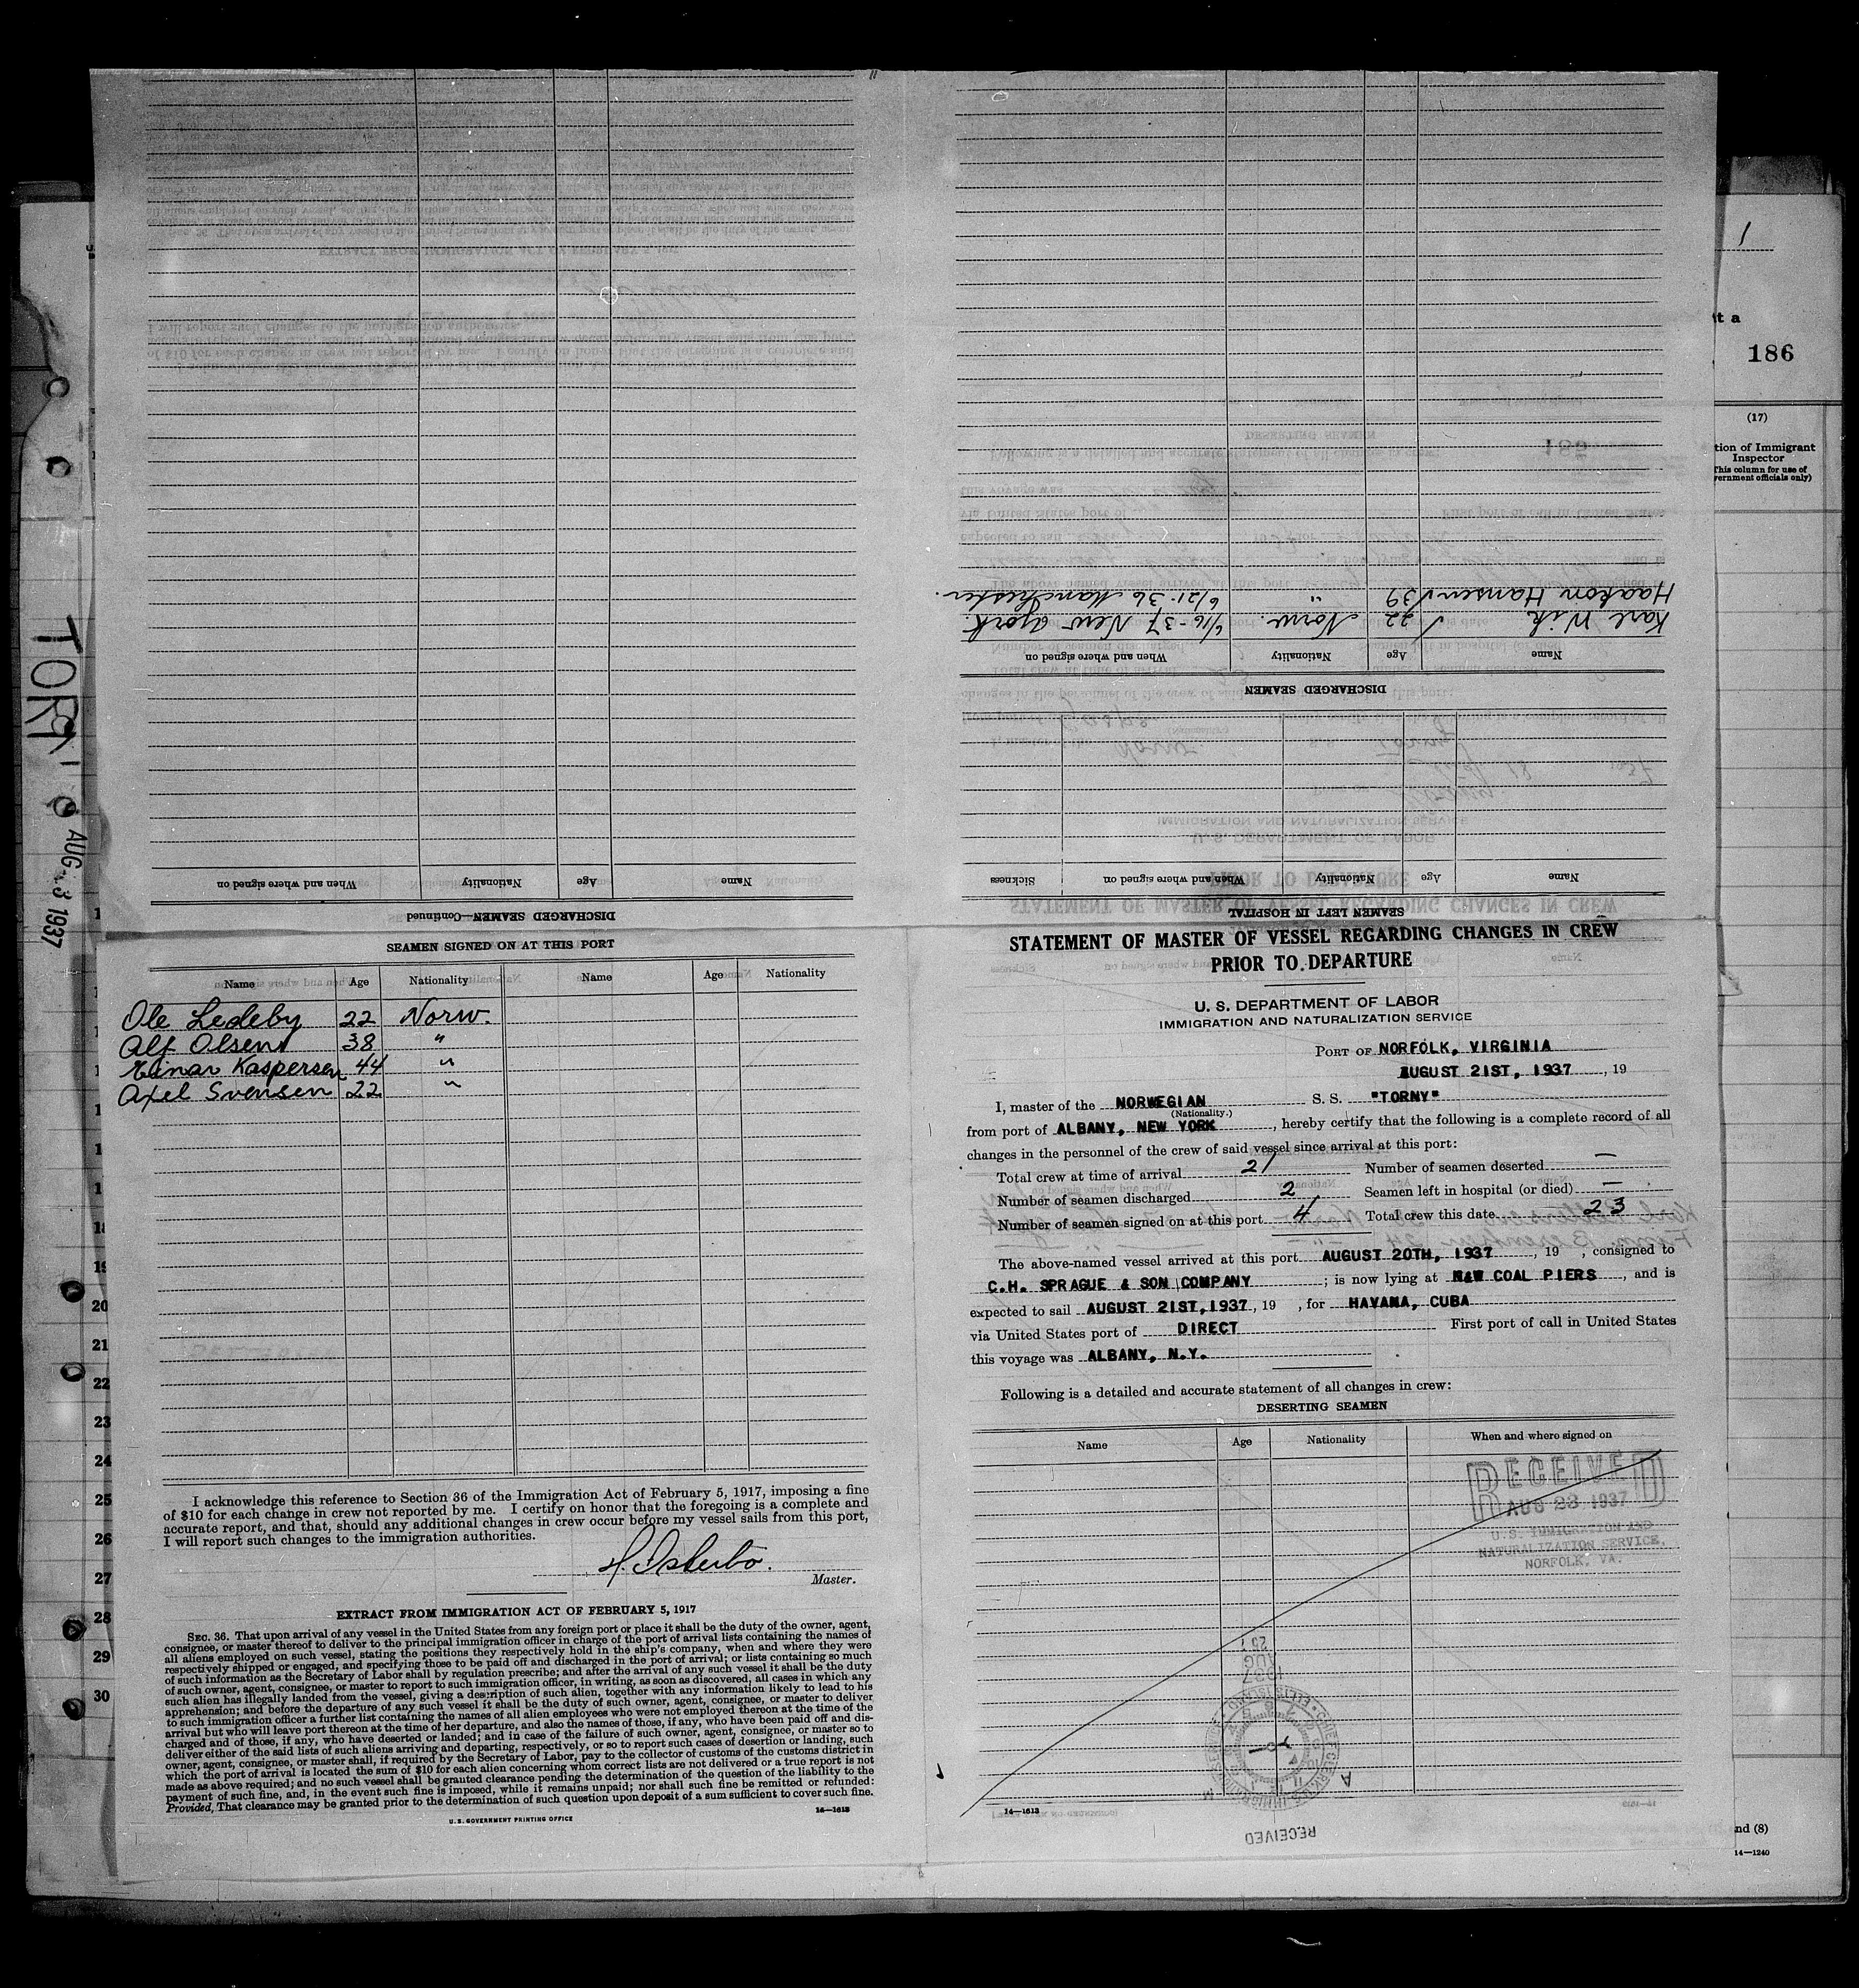 STATEMENT OF MASTER OF VESSEL REGARDING CHANGES IN CREW
PRIOR TO DEPARTURE
U. S. DEPARTMENT OF LABOR
IMMIGRATION AND NATURALIZATION SERVICE
PORT OF NORFOLK, VIRGINIA
AUGUST 21ST, 1937, 19
I, master of the NORWEGIAN S. S. "TORNY"
(Nationality.)
from port of ALBANY, NEW YORK, hereby certify that the following is a complete record of all
changes in the personnel of the crew of said vessel since arrival at this port:
Total crew at time of arrival 21 Number of seamen deserted —
Number of seamen discharged 2 Seamen left in hospital (or died) —
Number of seamen signed on at this port 4 Total crew this date 23
The above-named vessel arrived at this port AUGUST 20TH, 1937, 19 , consigned to
C.H. SPRAGUE & SON COMPANY ; is now lying at N&W COAL PIERS, and is
expected to sail AUGUST 21ST, 1937, 19 , for HAVANA, CUBA
via United States port of DIRECT First port of call in United States
this voyage was ALBANY, N.Y.
Following is a detailed and accurate statement of all changes in crew:
DESERTING SEAMEN
Name Age Nationality When and where signed on
RECEIVED
AUG 23 1937
U.S. IMMIGRATION AND
NATURALIZATION SERVICE,
NORFOLK, VA.
14—1613
RECEIVED
SEAMEN LEFT IN HOSPITAL
Name Age Nationality When and where signed on Sickness
DISCHARGED SEAMEN
Name Age Nationality When and where signed on
Karl Wik 22 Norw. 6/16-37 New York.
Haakon Hansen 39 " 6/21-36 Manchester.
DISCHARGED SEAMEN—Continued
Name Age Nationality When and where signed on
SEAMEN SIGNED ON AT THIS PORT
Name Age Nationality Name Age Nationality
Ole Ledeby 22 Norw.
Alf Olsen 38 "
Einar Kaspersen 44 "
Axel Svensen 22 "
I acknowledge this reference to Section 36 of the Immigration Act of February 5, 1917, imposing a fine
of $10 for each change in crew not reported by me. I certify on honor that the foregoing is a complete and
accurate report, and that, should any additional changes in crew occur before my vessel sails from this port,
I will report such changes to the immigration authorities.
Master.
EXTRACT FROM IMMIGRATION ACT OF FEBRUARY 5, 1917
SEC. 36. That upon arrival of any vessel in the United States from any foreign port or place it shall be the duty of the owner, agent,
consignee, or master thereof to deliver to the principal immigration officer in charge of the port of arrival lists containing the names of
all aliens employed on such vessel, stating the positions they respectively hold in the ship's company, when and where they were
respectively shipped or engaged, and specifying those to be paid off and discharged in the port of arrival; or lists containing so much
of such information as the Secretary of Labor shall by regulation prescribe; and after the arrival of any such vessel it shall be the duty
of such owner, agent, consignee, or master to report to such immigration officer, in writing, as soon as discovered, all cases in which any
such alien has illegally landed from the vessel, giving a description of such alien, together with any information likely to lead to his
apprehension; and before the departure of any such vessel it shall be the duty of such owner, agent, consignee, or master to deliver
to such immigration officer a further list containing the names of all alien employees who were not employed thereon at the time of the
arrival but who will leave port thereon at the time of her departure, and also the names of those, if any, who have been paid off and dis-
charged and of those, if any, who have deserted or landed; and in case of the failure of such owner, agent, consignee, or master so to
deliver either of the said lists of such aliens arriving and departing, respectively, or so to report such cases of desertion or landing, such
owner, agent, consignee, or master shall, if required by the Secretary of Labor, pay to the collector of customs of the customs district in
which the port of arrival is located the sum of $10 for each alien concerning whom correct lists are not delivered or a true report is not
made as above required; and no such vessel shall be granted clearance pending the determination of the question of the liability to the
payment of such fine, and, in the event such fine is imposed, while it remains unpaid; nor shall such fine be remitted or refunded:
Provided, That clearance may be granted prior to the determination of such question upon deposit of a sum sufficient to cover such fine.
U. S. GOVERNMENT PRINTING OFFICE 14—1613
1
t a
186
(17)
tion of Immigrant
Inspector
This column for use of
vernment officials only)
nd (8)
14—1240
20
21
22
23
24
25
26
27
28
29
30